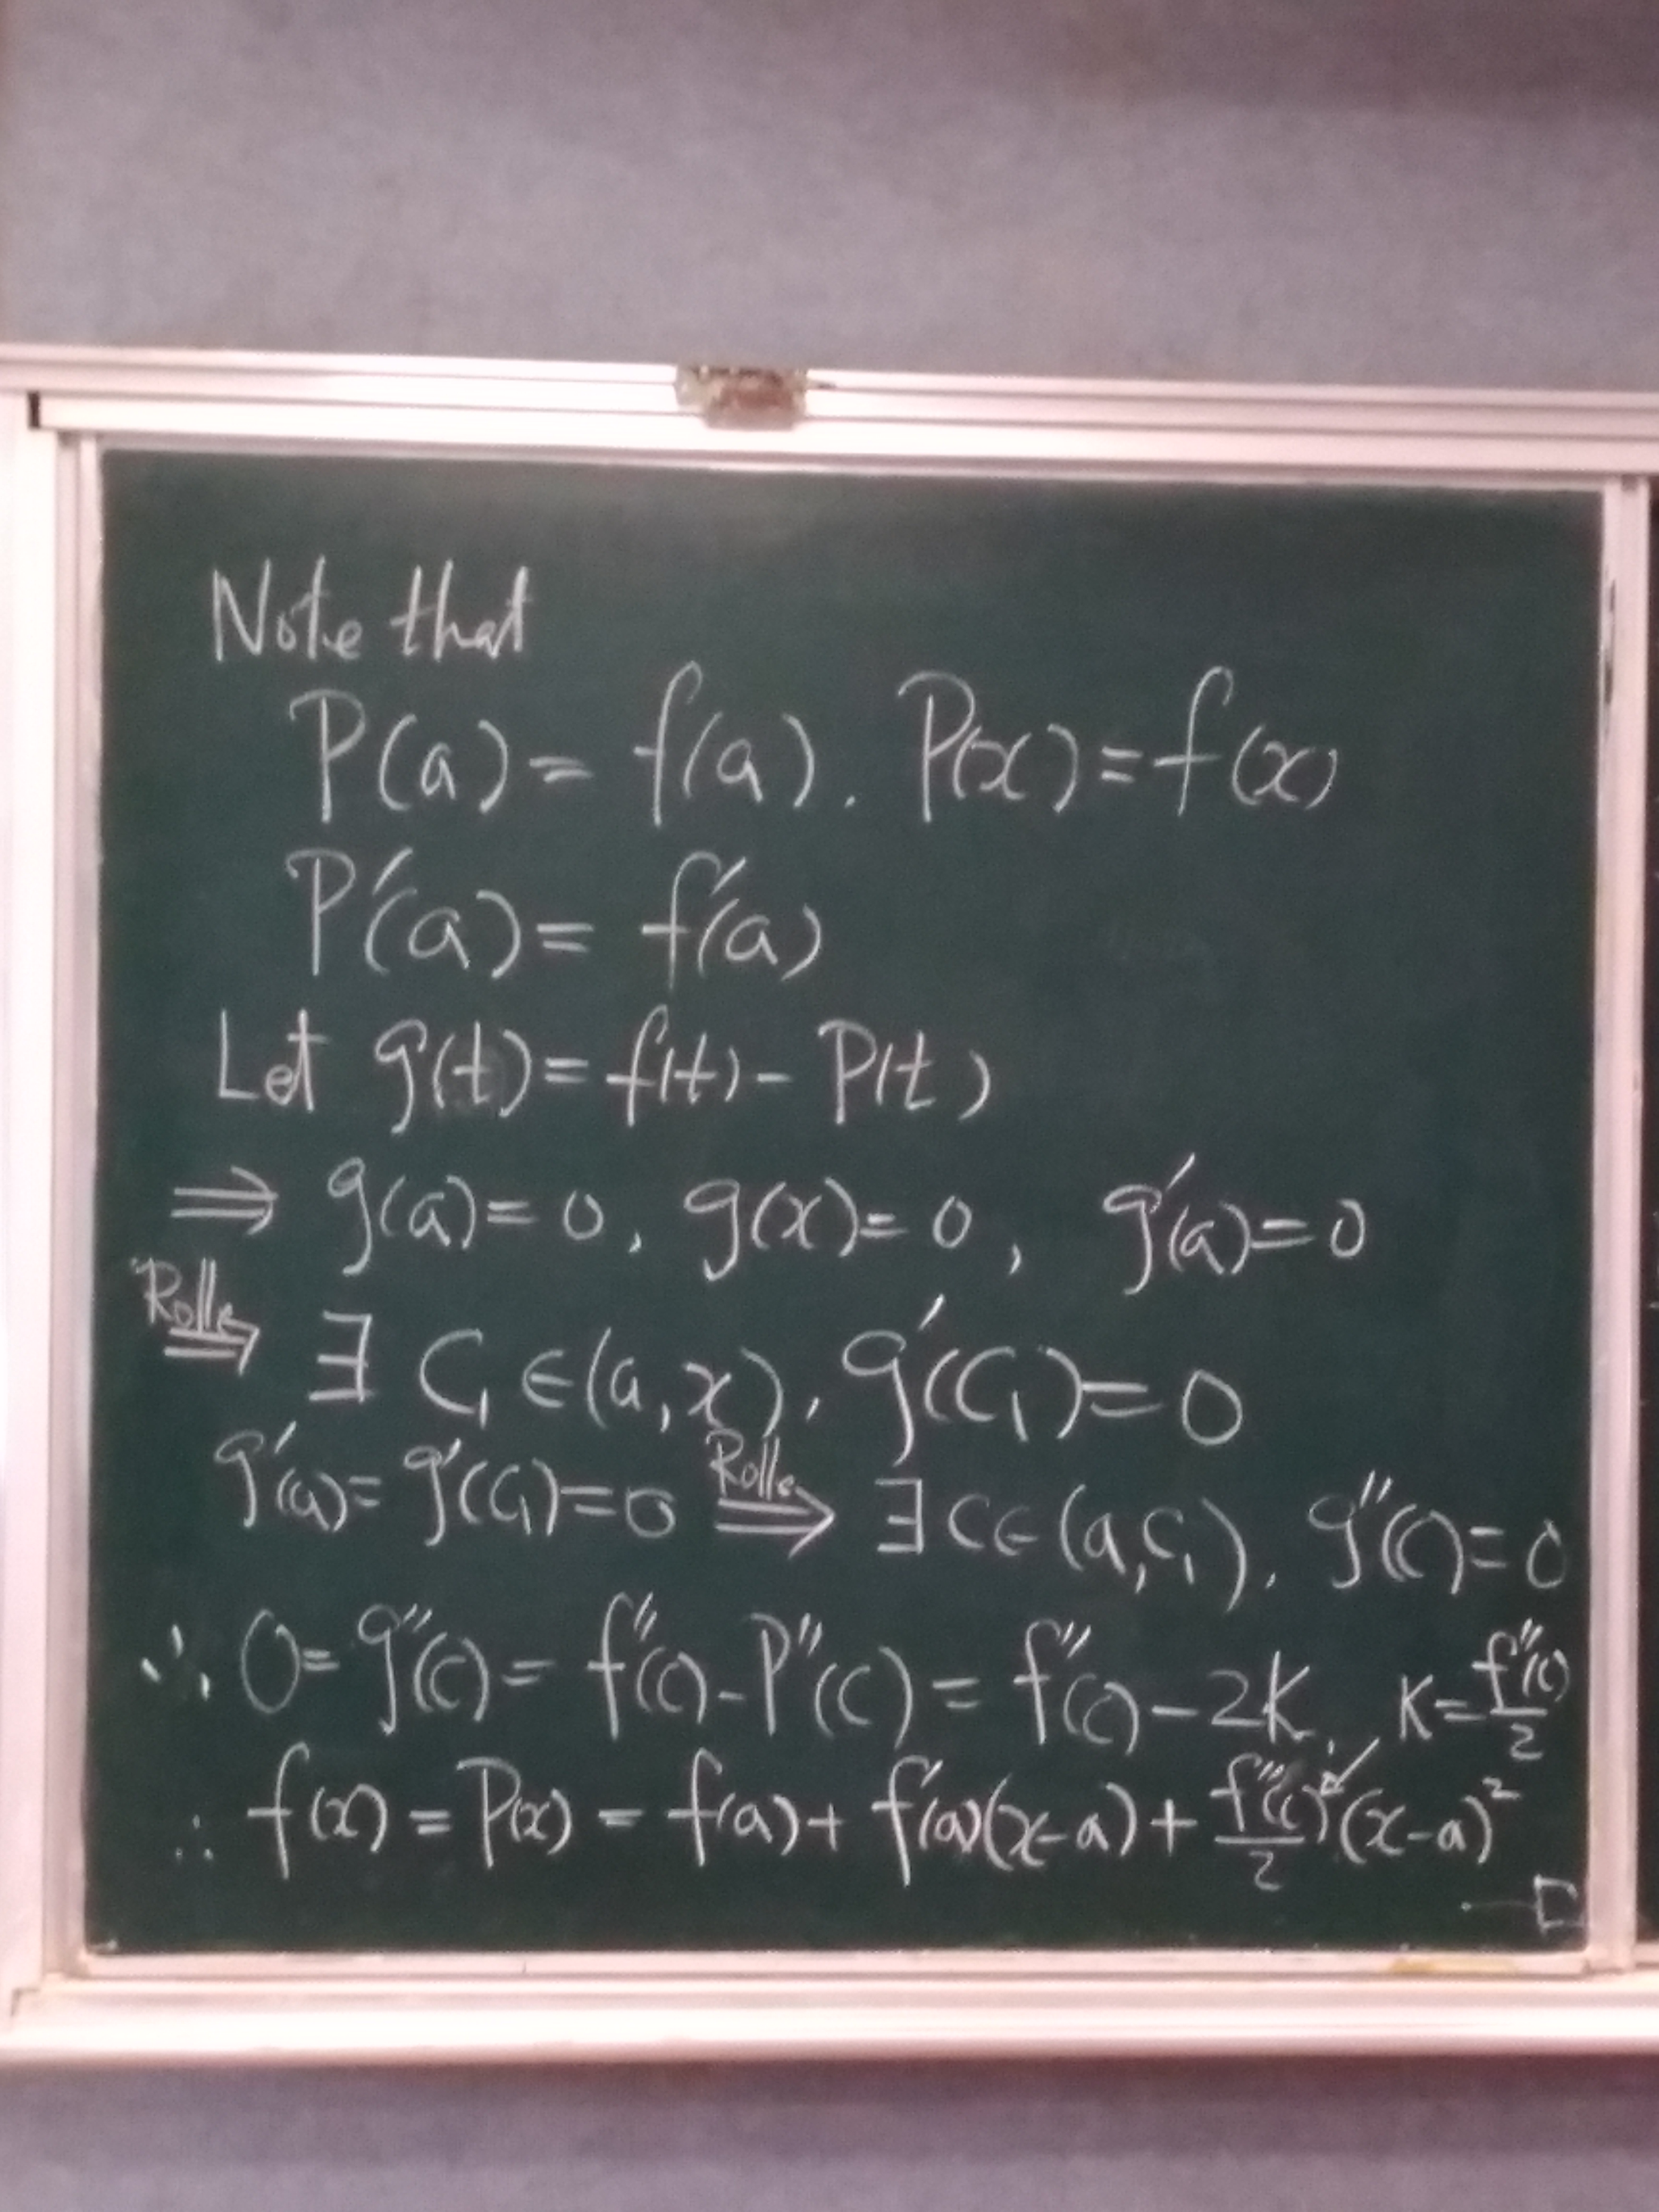 Note that
P(a) = f(a). P(x) = f(x)
P'(a) = f'(a)
Let g(t) = f(t) - P(t)
⇒ g(a) = 0, g(x) = 0, g'(a) = 0
Rolle
⇒ ∃ C₁ ∈ (a, x), g'(C₁) = 0
g'(a) = g'(C₁) = 0 Rolle ⇒ ∃ C ∈ (a, C₁), g''(C) = 0
∴ 0 = g''(C) = f''(C) - P''(C) = f''(C) - 2K, K = f''(C)/2
∴ f(x) = P(x) = f(a) + f'(a)(x-a) + f''(C)/2 (x-a)²